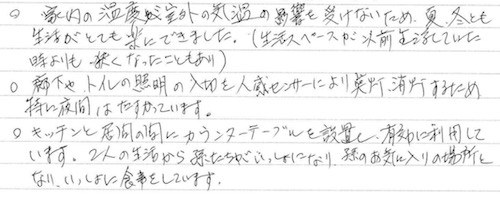 ○ 家内の温度が室外の気温の影響を受けないため、夏、冬とも
生活がとても楽にできました。(生活スペースが以前生活していた
時よりも、狭くなったこともあり)
○ 廊下やトイレの照明の入切を人感センサーにより点灯、消灯するため
特に夜間はたすかっています。
○ キッチンと居間の間にカウンターテーブルを設置し、有効に利用して
います。2人の生活から孫たちがいっしょになり、孫のお気に入りの場所と
なり、いっしょに食事をしています。